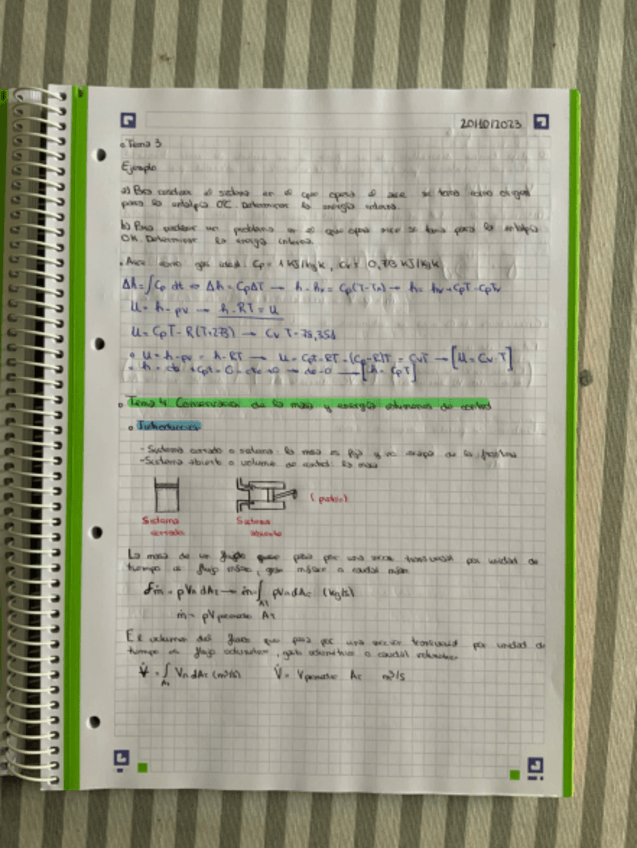 20/10/2023
• Tema 3
Ejemplo
a) Para considerar el sistema en el que opera el aire se toma como origen
para la entalpia 0ºC. Determinar la energía interna.
b) Para un problema en el que opera aire se toma para la entalpia
0K. Determinar la energía interna.
• Aire como gas ideal: Cp = 1 KJ/kg K, Cv = 0,713 KJ/kgK
Δh = ∫ Cp dt ⇨ Δh = CpΔT → h - hr = Cp(T-Tr) → h = hr + CpT - CpTr
u = h - pv → h - RT = u
u = CpT - R(T+273) → Cv T - 78,351
• u = h - pv = h - RT → u = CpT - RT = (Cp-R)T = CvT → [u = Cv T]
• h = cte + CpT = 0 - cte = 0 → cte = 0 → [h = CpT]
• Tema 4. Conservación de la masa y energía volumenes de control
• Introducción
- Sistema cerrado o sistema: la masa es fija y no escapa de la frontera
- Sistema abierto o volumen de control: la masa
(pistón)
Sistema Sistema
cerrado abierto
La masa de un flujo que pasa por una sección transversal por unidad de
tiempo es flujo másico, gasto másico o caudal másico
δṁ = ρ Vn dAc → ṁ = ∫Ac ρVn dAc (kg/s)
ṁ = ρ Vpromedio Ac
El volumen del fluido que pasa por una sección transversal por unidad de
tiempo es flujo volumétrico, gasto volumétrico o caudal volumétrico
V̇ = ∫Ac Vn dAc (m³/s) V̇ = Vpromedio Ac m³/s